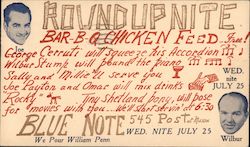 ROUNDUP NITE
BAR-B-Q CHICKEN FEED. Free!
Joe
George Cerruti will squeeze his Accordion
Wilbur Stump will pound the piano
Sally and Millie'll serve you
WED.
nite
JULY 25
Joe Payton and Omar will mix drinks
"Rocky" Tiny Shetland Pony, will pose
for movies with you. We'll start servin' at 6:30
BLUE NOTE 545 Post at Mason
WED. NITE JULY 25
We Pour William Penn
Wilbur